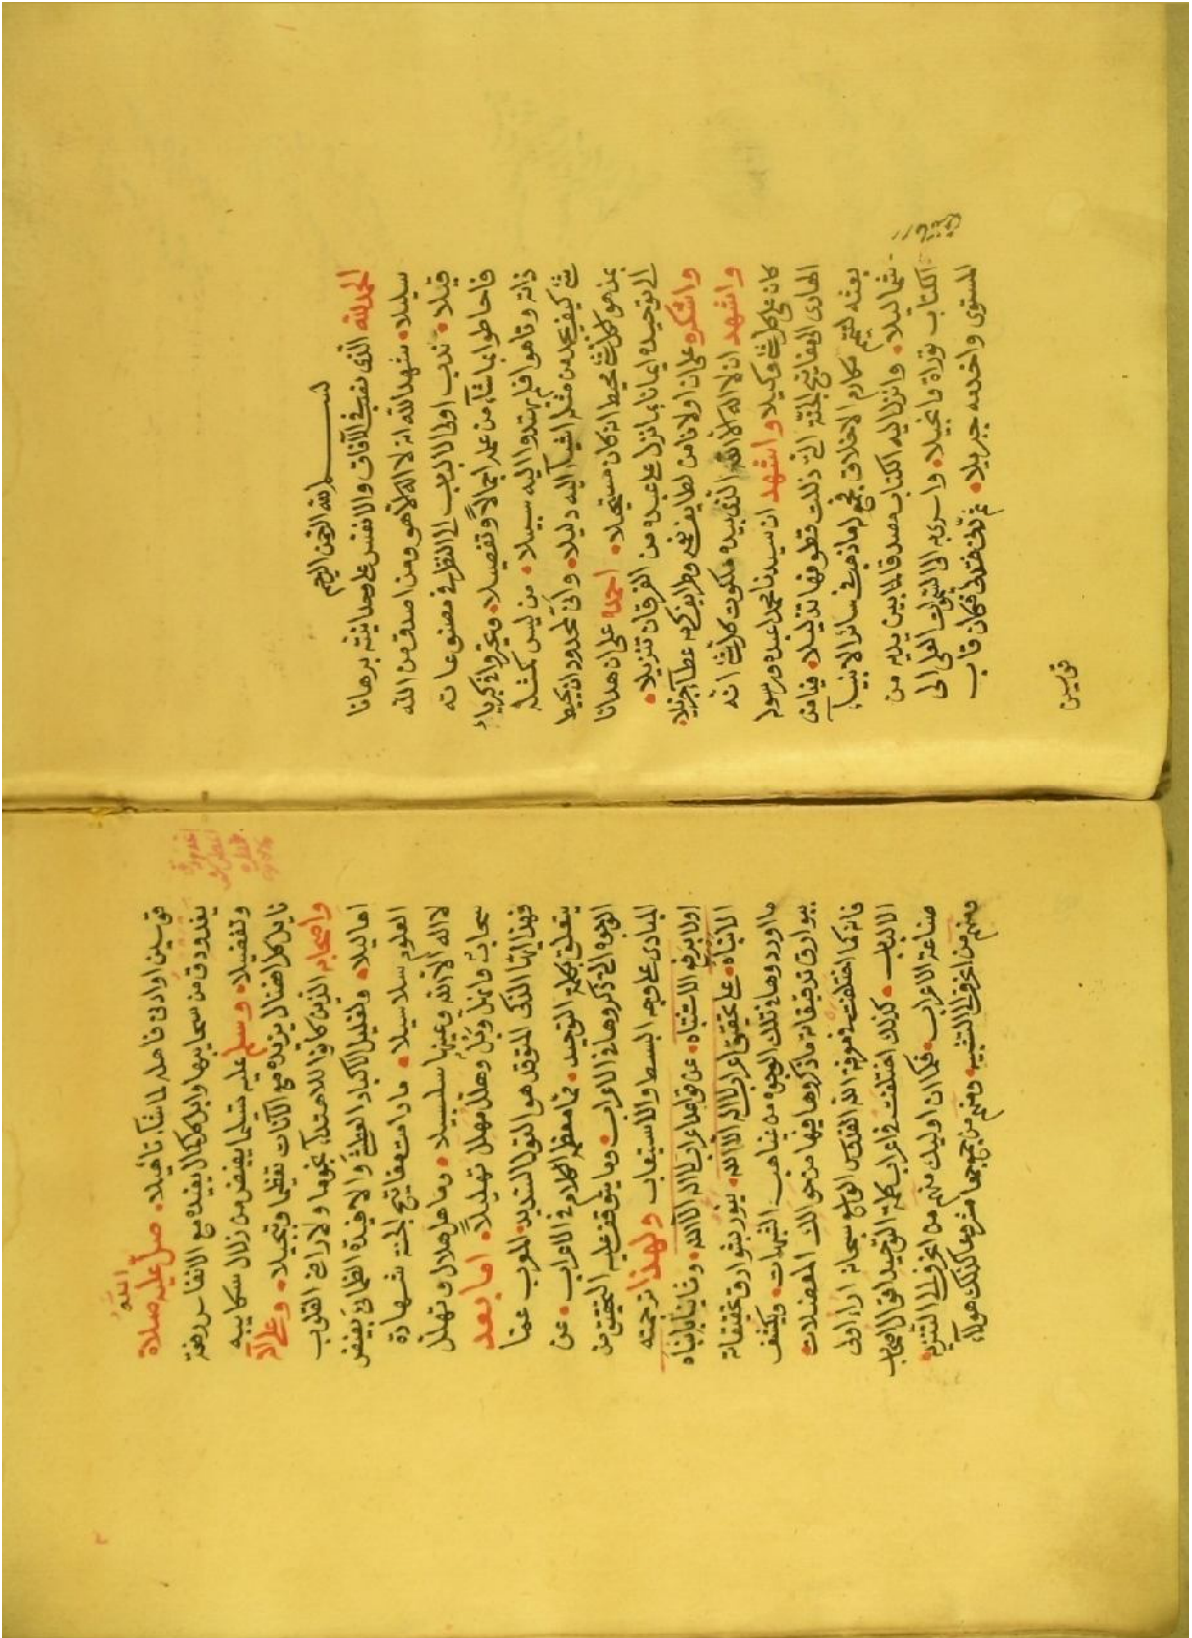 بسم الله الرحمن الرحيم
الحمد لله الذي نصب في الآفاق والانفس على وحدانيته برهانا
سبيلا • شهد الله انه لا اله الا هو ومن اصدق من الله
قيلا • ندب اولي الالباب الى النظر في مصنوعاته
فاحاطوا بما شاء من علمه اجمالا وتفصيلا • وتحيروا في كبرياء
ذاته وتاهوا فلم يهتدوا اليه سبيلا • من ليس كمثله
شئ كيف يجد من مثله اشياء اليه دليلا • وانى لمحدود ان يحيط
بمن هو بكل شئ محيط اذ كان مستحيلا • احمده على ان هدانا
الى توحيده ايمانا بما نزل على عبده من الفرقان تنزيلا •
واشكره على ان اولانا من لطايف نعمه وطرايف كرمه عطاء جزيلا •
واشهد ان لا اله الا الله الذي بيده ملكوت كل شئ انه
كان على كل شئ وكيلا واشهد ان سيدنا محمدا عبده ورسوله
الهادي الى مفاتيح الجنة التي ذللت قطوفها تذليلا • فيا من
بعثه لتتميم مكارم الاخلاق فجمع له ما ذهب في سائر الانبياء
شماليلا • وانزل اليه الكتاب مصدقا لما بين يديه من
الكتاب توراة وانجيلا • واسرى به الى السموات العلى الى
المستوى واخدمه جبريلا • ثم دنى فتدلى فكان قاب
قوسين
قوسين او ادنى فاهله لما شاء تأهيلا • صلى الله عليه صلاة
يغدودق من سحايبها وابل كل كمال يفيده مع الانفاس رفعة
وتفضيلا • وسلم عليه تسليما يفيض من زلال سكايبه
نايل كل افضال يزيده مع الآنات تعظيما وتبجيلا • وعلى آله
واصحابه الذين كانوا للاهتداء نجوما ولاراضي القلوب
اهاليلا • ولغليل الاكباد العطشى والافئدة الظمأى بفيض
العلوم سلاسيلا • ما دامت مفاتيح الجنة شهادة
لا اله الا الله وعينها سلسبيلا • وما هل هلال وتهلل
سحاب وانهل وبل وهلل مهلل تهليلا • اما بعد
فهذا ايها الذكي المتوقد هو القول السديد • المعرب عما
يتعلق بكلمة التوحيد • مما معظمه الكلام في الاعراب • عن
الوجوه التي ذكروها في الاعراب • وما يتوقف عليه التحقيق من
المبادي على وجه البسط والاستيعاب ولهذا ترجمته
اولا برفع الاشتباه • عن قواعد اعراب لا اله الا الله • وثانيا بانباه
الانباه • على تحقيق اعراب لا اله الا الله • بنور بشوارق تحقيقاته
ما اوردوها في تلك الوجوه من غياهب الشبهات • ويكشف
ببوارق تدقيقاته ما ذكروها فيها من حوالك المعضلات •
فانه كما اختلفت في معرفة الله القدوس الواسع سبحانه آراء اولي
الالباب • كذلك اختلفت في اعراب كلمة التوحيد اقوال اصحاب
صناعة الاعراب • فكما ان اوليك منهم من انحرف الى التنزيه •
ومنهم من انحرف الى التشبيه • ومنهم من جمع جمعا مشروعا كذلك هولاء